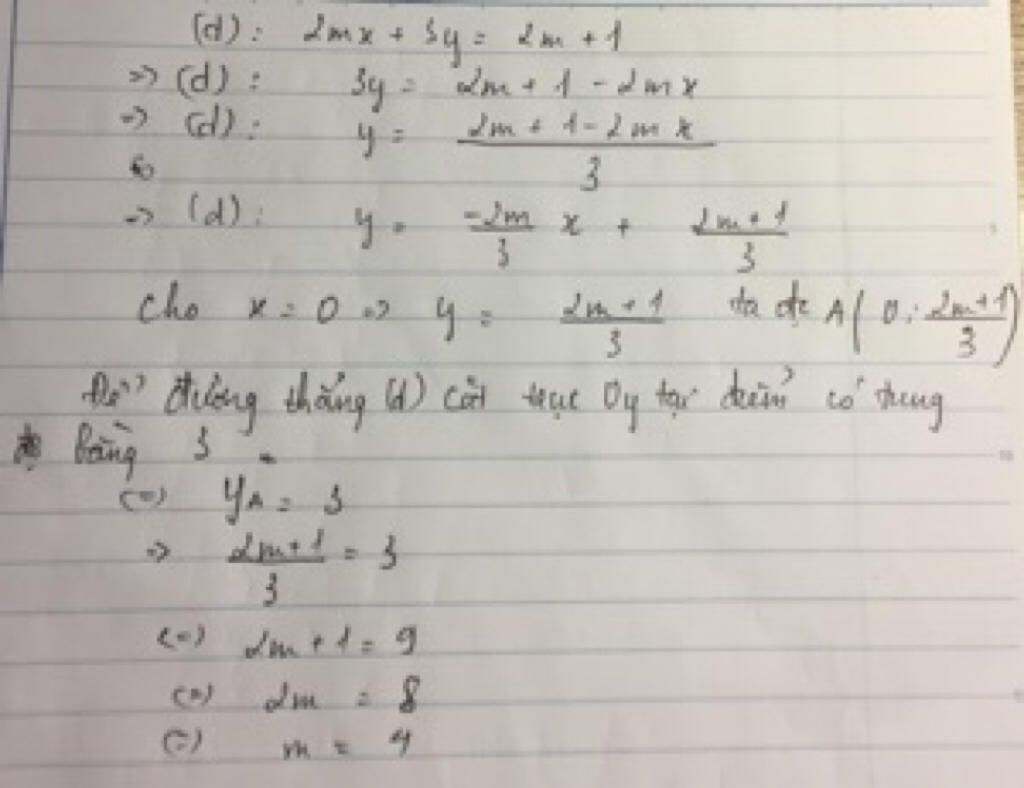 (d): 2mx + 3y = 2m + 1
=> (d): 3y = 2m + 1 - 2mx
=> (d): y = (2m + 1 - 2mx)/3
=> (d): y = -2m/3 x + (2m+1)/3
Cho x = 0 => y = (2m+1)/3 ta đc A(0; (2m+1)/3)
Để đường thẳng (d) cắt trục Oy tại điểm có tung
bằng 3
(=) yA = 3
=> (2m+1)/3 = 3
(=) 2m + 1 = 9
(=) 2m = 8
(=) m = 4